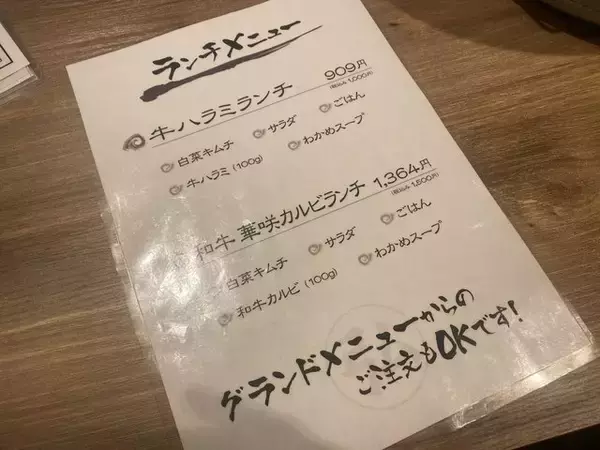 ランチメニュー
牛ハラミランチ 909円
(税込み 1,000円)
白菜キムチ サラダ ごはん
牛ハラミ (100g) わかめスープ
和牛 華咲カルビランチ 1,364円
(税込み 1,500円)
白菜キムチ サラダ ごはん
和牛カルビ (100g) わかめスープ
グランドメニューからの
ご注文もOKです!